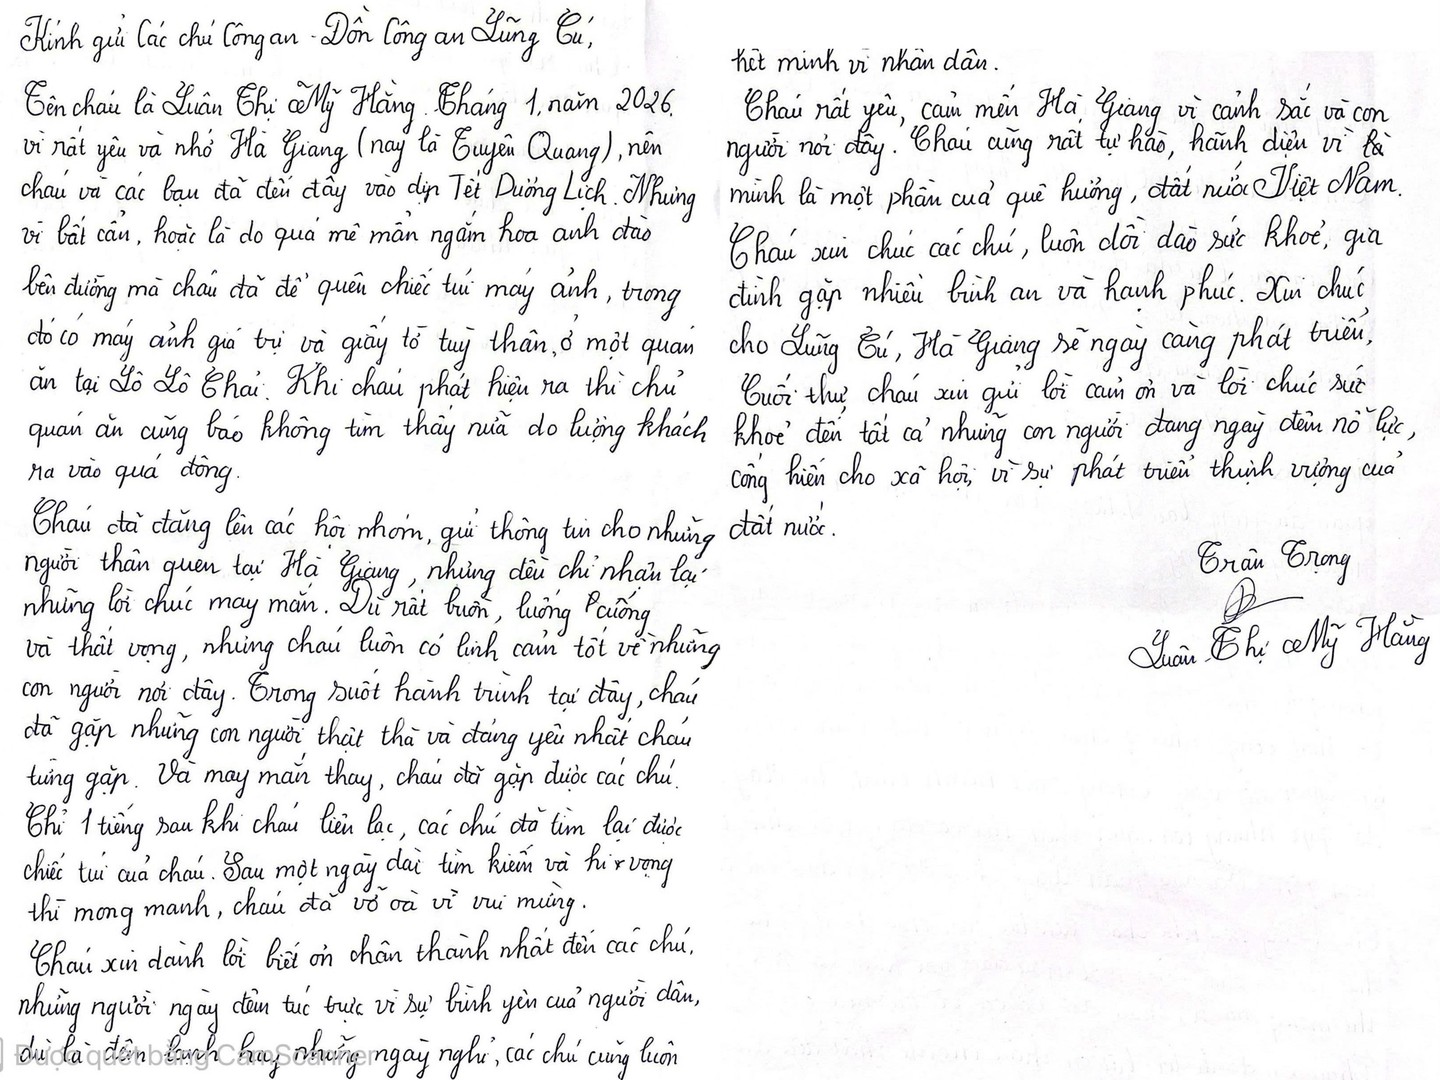 Kính gửi Các chú Công an - Đồn Công an Lũng Cú,
Tên cháu là Luân Thị Mỹ Hằng. Tháng 1, năm 2026.
vì rất yêu và nhớ Hà Giang (nay là Tuyên Quang), nên
cháu và các bạn đã đến đây vào dịp Tết Dương Lịch. Nhưng
vì bất cẩn, hoặc là do quá mê mẩn ngắm hoa anh đào
bên đường mà cháu đã để quên chiếc túi máy ảnh, trong
đó có máy ảnh giá trị và giấy tờ tuỳ thân, ở một quán
ăn tại Lô Lô Chải. Khi cháu phát hiện ra thì chủ
quán ăn cũng báo không tìm thấy nữa do lượng khách
ra vào quá đông.
Cháu đã đăng lên các hội nhóm, gửi thông tin cho những
người thân quen tại Hà Giang, nhưng đều chỉ nhận lại
những lời chúc may mắn. Dù rất buồn, luống cuống
và thất vọng, nhưng cháu luôn có linh cảm tốt về những
con người nơi đây. Trong suốt hành trình tại đây, cháu
đã gặp những con người thật thà và đáng yêu nhất cháu
từng gặp. Và may mắn thay, cháu đã gặp được các chú.
Chỉ 1 tiếng sau khi cháu liên lạc, các chú đã tìm lại được
chiếc túi của cháu. Sau một ngày dài tìm kiếm và hi vọng
thì mong manh, cháu đã vỡ oà vì vui mừng.
Cháu xin dành lời biết ơn chân thành nhất đến các chú,
những người ngày đêm túc trực vì sự bình yên của người dân,
dù là đêm lạnh hay những ngày nghỉ, các chú cũng luôn
Được quét bằng CamScanner
hết mình vì nhân dân.
Cháu rất yêu, cảm mến Hà Giang vì cảnh sắc và con
người nơi đây. Cháu cũng rất tự hào, hãnh diện vì
mình là một phần của quê hương, đất nước Việt Nam.
Cháu xin chúc các chú, luôn dồi dào sức khoẻ, gia
đình gặp nhiều bình an và hạnh phúc. Xin chúc
cho Lũng Cú, Hà Giang sẽ ngày càng phát triển,
Cuối thư, cháu xin gửi lời cảm ơn và lời chúc sức
khoẻ đến tất cả những con người đang ngày đêm nỗ lực,
cống hiến cho xã hội, vì sự phát triển thịnh vượng của
đất nước.
Trân Trọng
Luân Thị Mỹ Hằng